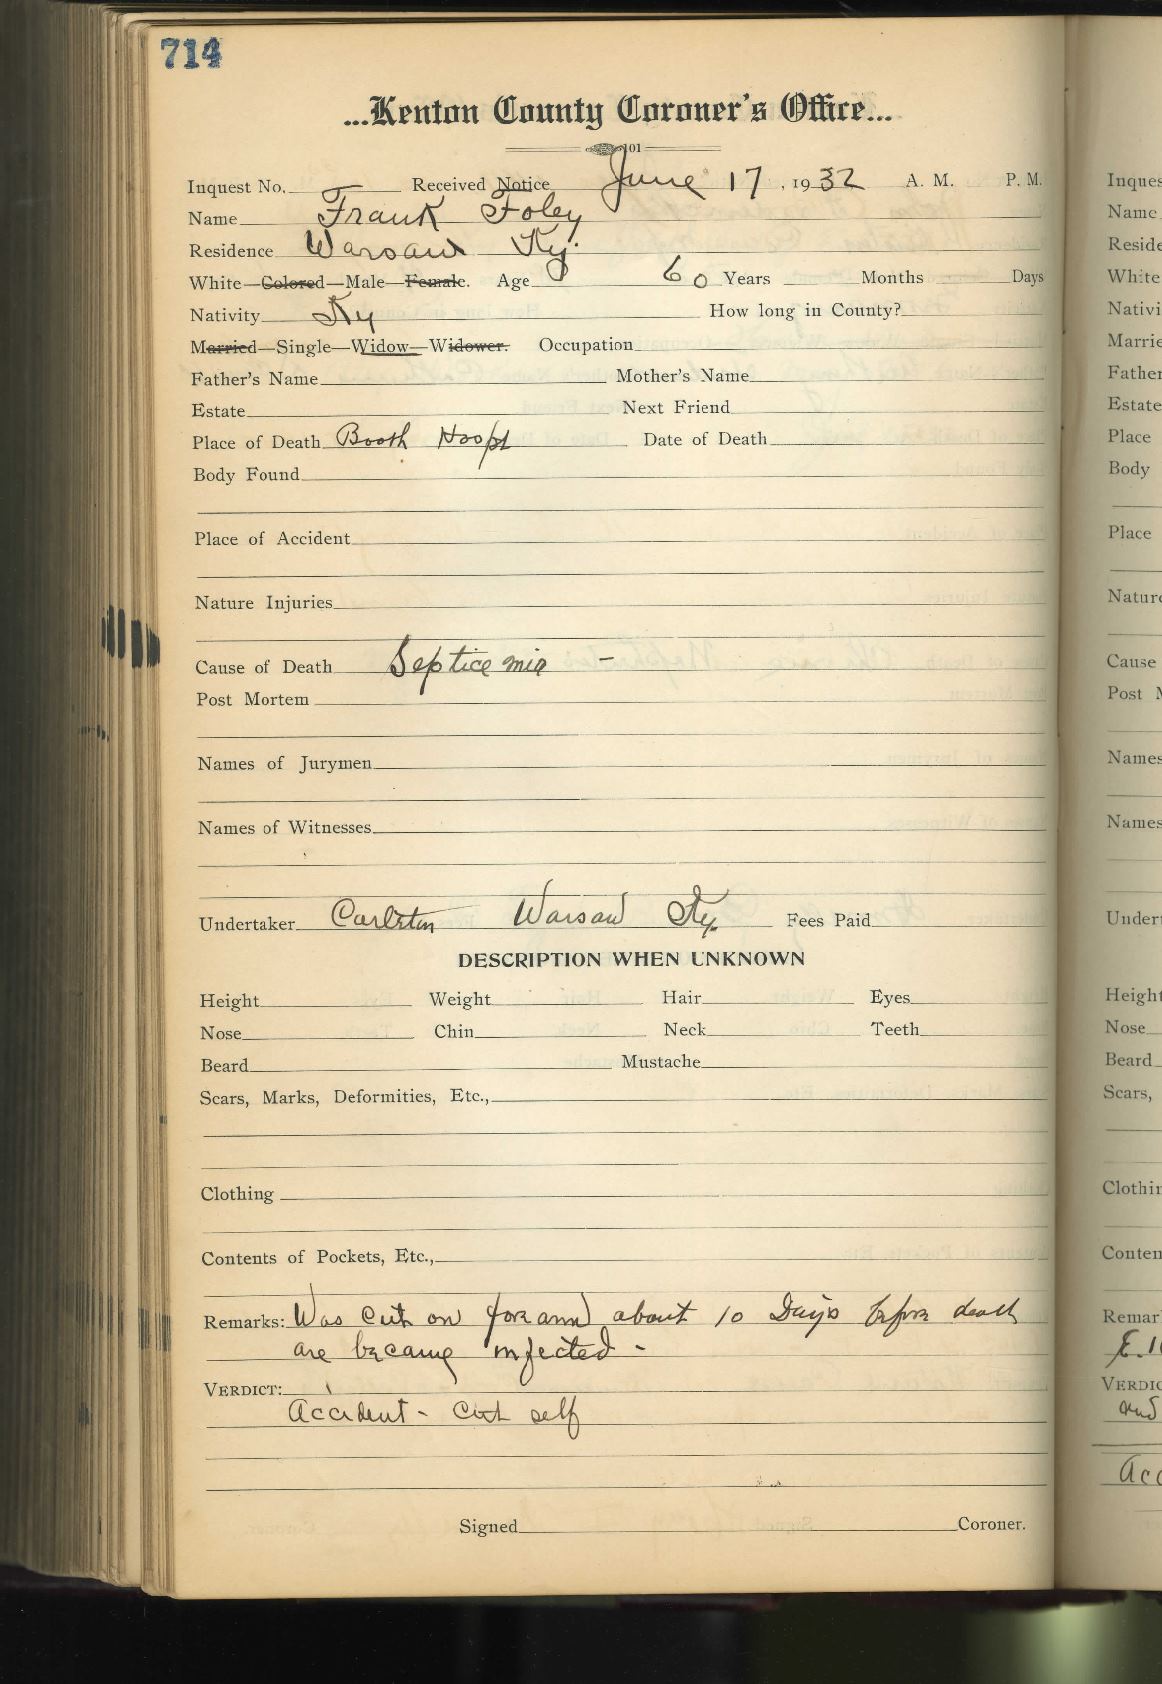 714
...Kenton County Coroner's Office...
101
Inquest No. Received Notice June 17, 1932 A. M. P. M.
Name Frank Foley
Residence Warsaw Ky.
White—Colored—Male—Female. Age 60 Years Months Days
Nativity Ky How long in County?
Married—Single—Widow—Widower. Occupation
Father's Name Mother's Name
Estate Next Friend
Place of Death Booth Hospt Date of Death
Body Found
Place of Accident
Nature Injuries
Cause of Death Septicemia -
Post Mortem
Names of Jurymen
Names of Witnesses
Undertaker Carlton Warsaw Ky. Fees Paid
DESCRIPTION WHEN UNKNOWN
Height Weight Hair Eyes
Nose Chin Neck Teeth
Beard Mustache
Scars, Marks, Deformities, Etc.,
Clothing
Contents of Pockets, Etc.,
Remarks: Was cut on forearm about 10 Days before death
are became infected -
VERDICT:
Accident - cut self
Signed Coroner.
Inques
Name
Reside
White
Nativi
Marrie
Father
Estate
Place
Body
Place
Nature
Cause
Post M
Names
Names
Undert
Height
Nose
Beard
Scars,
Clothin
Conten
Remar
VERDIC
and
Acc